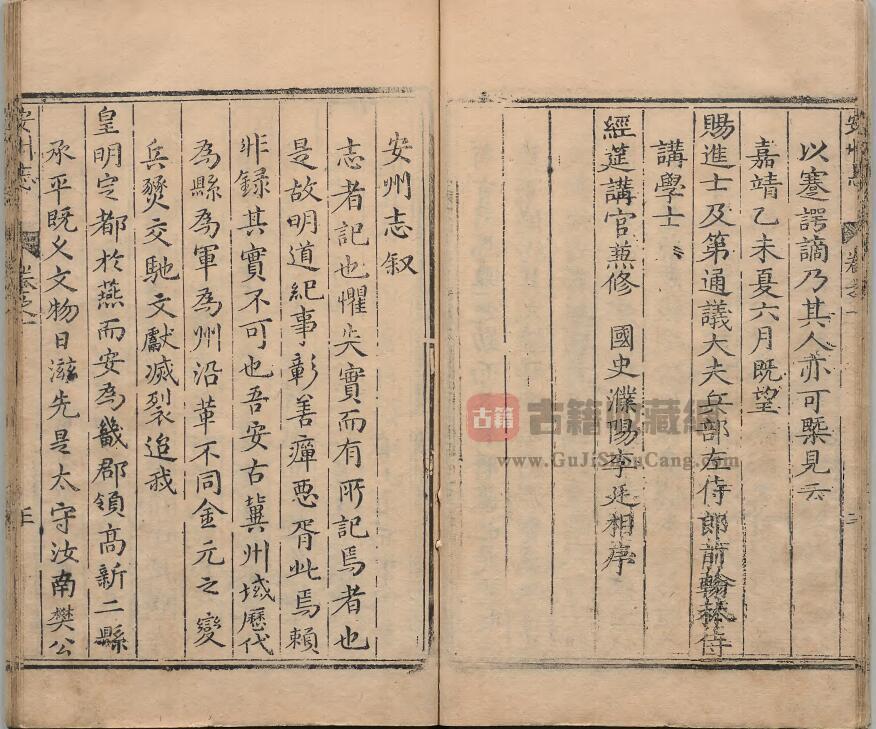 以蹇諤謫乃其人亦可槩見云
嘉靖乙未夏六月既望
賜進士及第通議大夫兵部左侍郎前翰林侍
講學士
經筵講官兼修 國史濮陽李廷相序
安州志叙
志者記也懼失實而有所記焉者也
是故明道紀事彰善癉惡胥此焉賴
非録其實不可也吾安古冀州域歷代
為縣為軍為州沿革不同金元之變
兵燹交馳文獻滅裂迨我
皇明定都於燕而安為畿郡領高新二縣
承平既久文物日滋先是太守汝南樊公
安州志 卷之一
古籍
古籍收藏網
www.GuJiShouCang.com